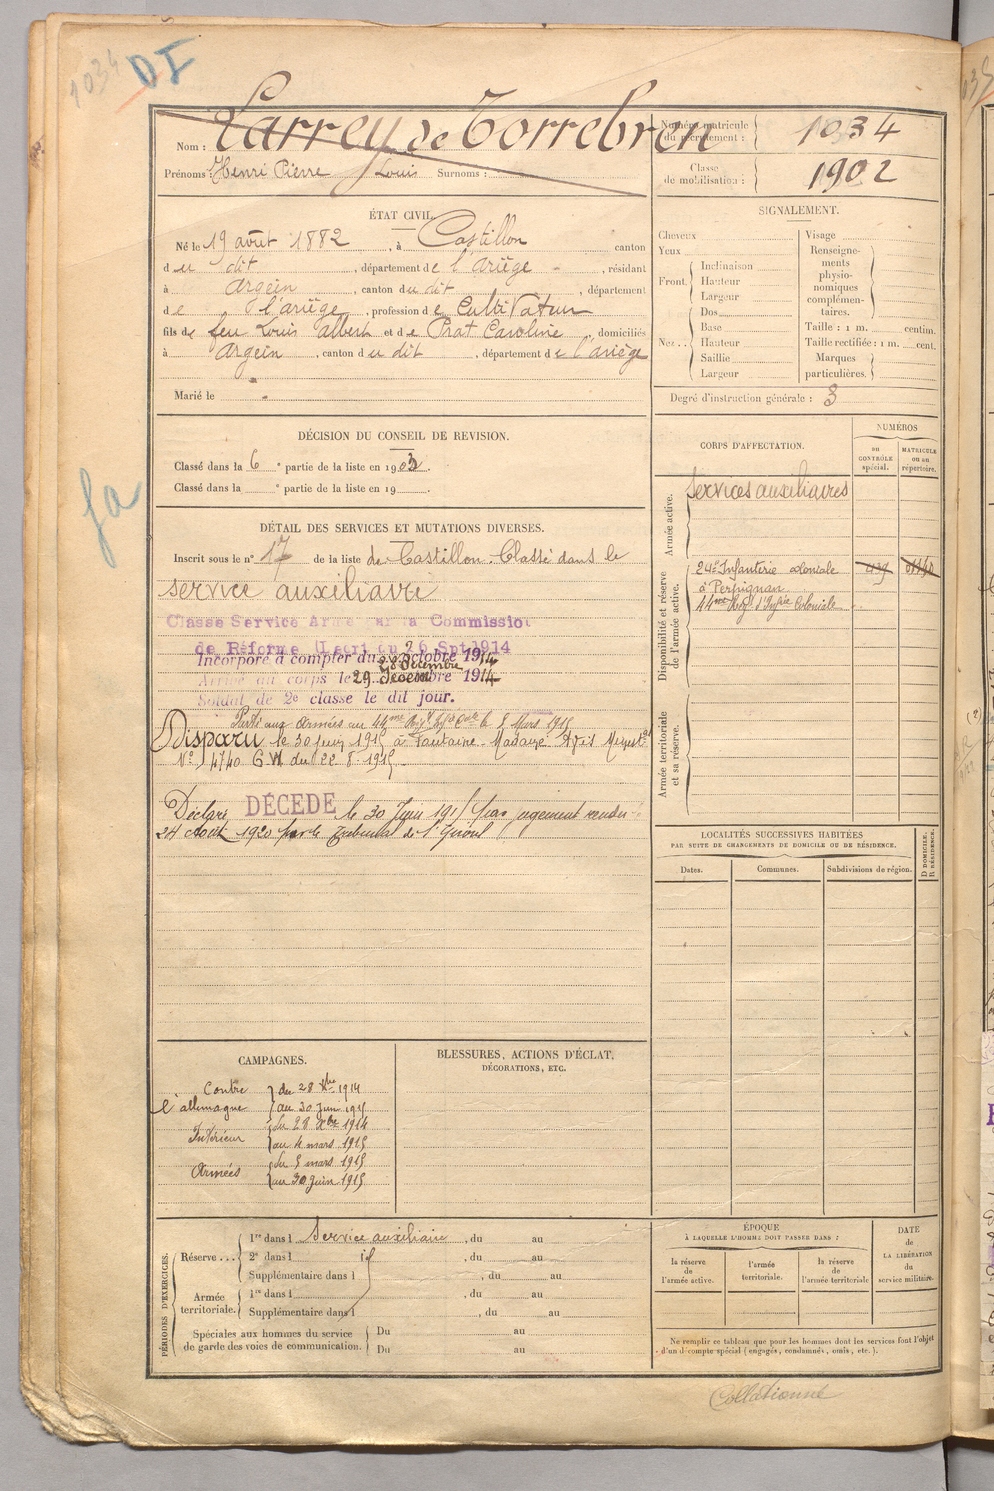 1034
DI
Nom : Larrey de Torrebren
Prénoms : Henri Pierre Louis Surnoms :
Numéro matricule du recrutement : 1034
Classe de mobilisation : 1902
ÉTAT CIVIL.
Né le 19 août 1882, à Castillon canton
du dit, département de l'Ariège, résidant
à Argein, canton du dit, département
de l'Ariège, profession de Cultivateur
fils de feu Louis Albert et de Prat Caroline, domiciliés
à Argein, canton du dit, département de l'Ariège
Marié le
SIGNALEMENT.
Cheveux
Yeux
Front. Inclinaison
Hauteur
Largeur
Nez... Dos
Base
Hauteur
Saillie
Largeur
Visage
Renseignements physionomiques complémentaires.
Taille : 1 m. centim.
Taille rectifiée : 1 m. cent.
Marques particulières.
Degré d'instruction générale : 3
DÉCISION DU CONSEIL DE REVISION.
Classé dans la 6e partie de la liste en 1903.
Classé dans la e partie de la liste en 19 .
DÉTAIL DES SERVICES ET MUTATIONS DIVERSES.
Inscrit sous le n° 17 de la liste de Castillon. Classé dans le
service auxiliaire
Classé Service Armé par la Commission
de Réforme (Décret du 26 Sept 1914
Incorporé à compter du 28 Décembre 1914
Arrivé au corps le 29 Décembre 1914
Soldat de 2e classe le dit jour.
Parti aux Armées au 44me le 5 Mars 1915
Disparu le 30 juin 1915 à Fontaine-Madame Avis
N° 4740 du 22.8.1915
Déclaré DÉCÉDÉ le 30 Juin 1915 par jugement rendu
24 Août 1920 par le Tribunal de St Girons
CORPS D'AFFECTATION.
NUMÉROS
au CONTRÔLE spécial.
MATRICULE ou au répertoire.
Armée active.
Services auxiliaires
Disponibilité et réserve de l'armée active.
24e Infanterie coloniale
à Perpignan
44me Régt d'Infrie Coloniale
Armée territoriale et sa réserve.
LOCALITÉS SUCCESSIVES HABITÉES
PAR SUITE DE CHANGEMENTS DE DOMICILE OU DE RÉSIDENCE.
Dates.
Communes.
Subdivisions de région.
D DOMICILE.
R RÉSIDENCE.
CAMPAGNES.
Contre l'Allemagne du 28 Xbre 1914
au 30 Juin 1915
Intérieur du 28 Xbre 1914
au 4 mars 1915
Armées du 5 mars 1915
au 30 Juin 1915
BLESSURES, ACTIONS D'ÉCLAT,
DÉCORATIONS, ETC.
PÉRIODES D'EXERCICES.
Réserve... 1re dans l Service auxiliaire, du au
2e dans l id, du au
Supplémentaire dans l , du au
Armée territoriale. 1re dans l , du au
Supplémentaire dans l , du au
Spéciales aux hommes du service de garde des voies de communication. Du au
Du au
ÉPOQUE
À LAQUELLE L'HOMME DOIT PASSER DANS :
la réserve de l'armée active.
l'armée territoriale.
la réserve de l'armée territoriale
DATE DE LA LIBÉRATION du service militaire.
Ne remplir ce tableau que pour les hommes dont les services font l'objet
d'un décompte spécial (engagés, condamnés, omis, etc.).
Collationné